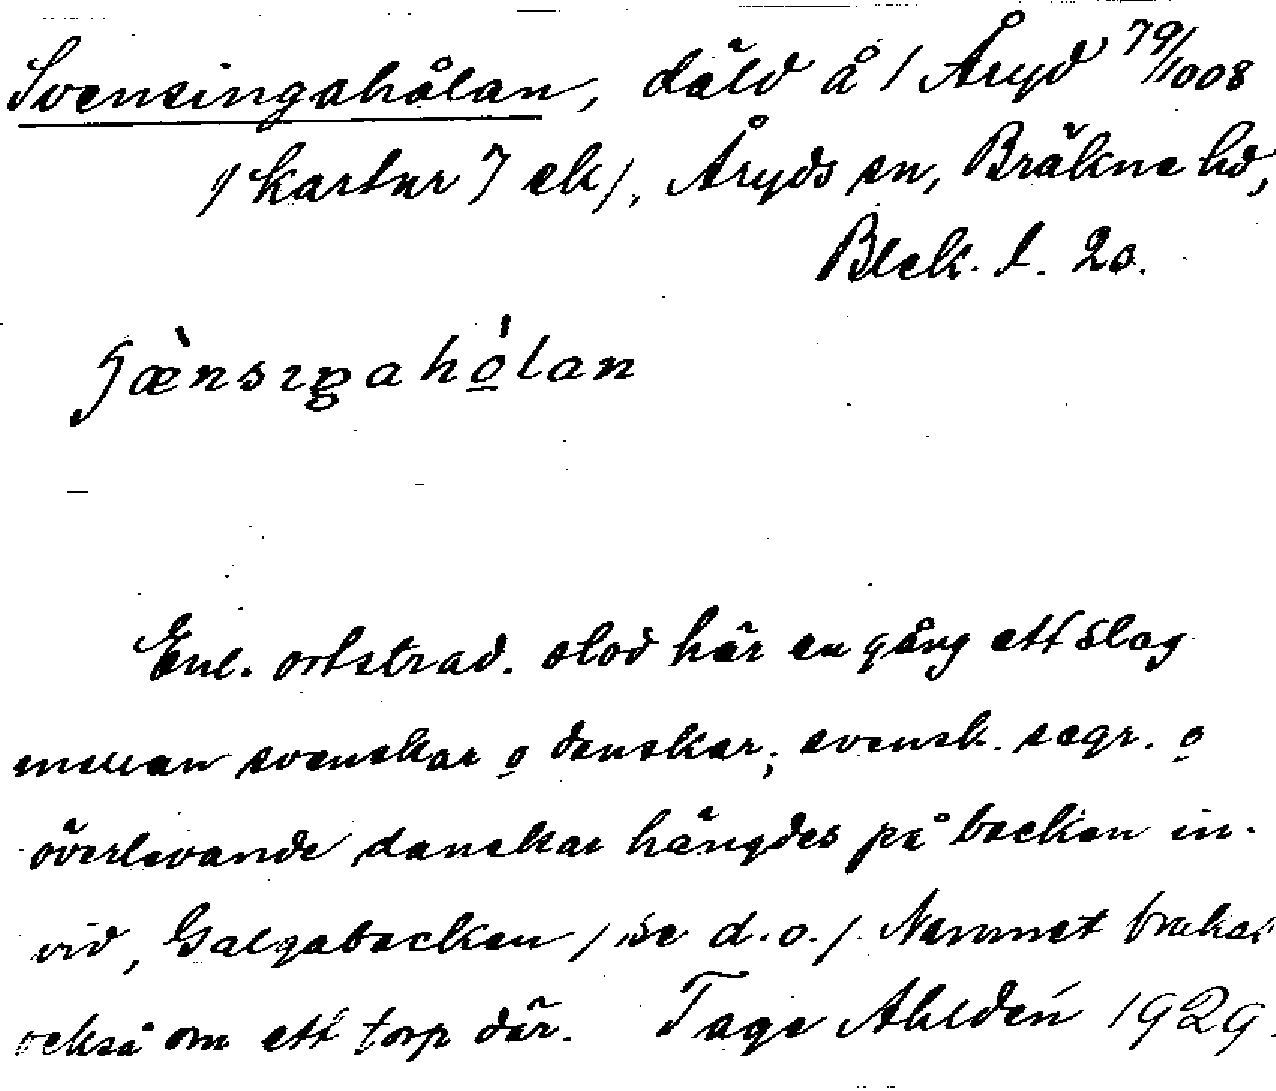 Svensingahålan, däld å 1 Åryd 79/1008
/kartnr 7 ek/, Åryds sn, Bräkne hd,
Blek. l. 20.
sænsiŋahǫ́lan
Enl. ortstrad. stod här en gång ett slag
mellan svenskar o danskar; svensk. segr. o
överlevande danskar hängdes på backen in-
vid, Galgabacken /se d.o./. Namnet brukas
också om ett torp där. Tage Ahldén 1929.